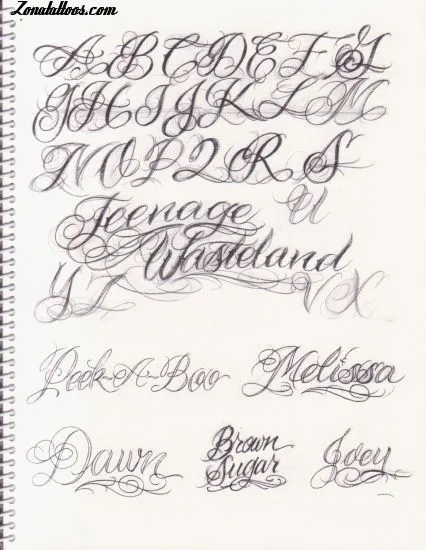 Zonatattoos.com
A B C D E F G
G H I J K L M
N O P Q R S
Teenage U
Wasteland
Y Z V X
Peek-A-Boo Melissa
Dawn Brown Joey
Sugar